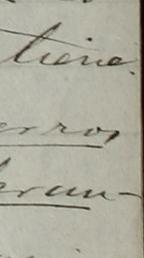 tiene.
erros,
eran-